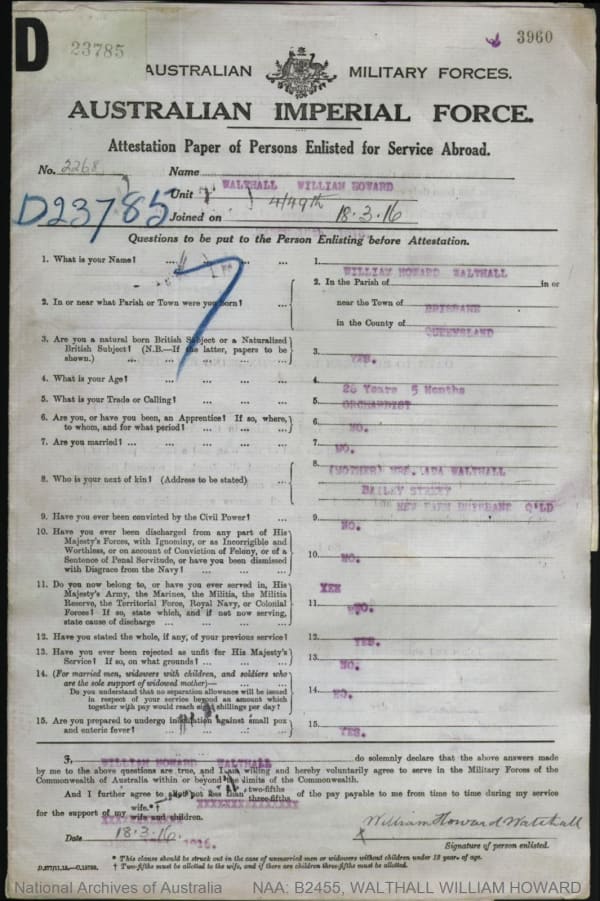 D
23785
3960
AUSTRALIAN MILITARY FORCES.
AUSTRALIAN IMPERIAL FORCE.
Attestation Paper of Persons Enlisted for Service Abroad.
No. 2268 Name WALTHALL WILLIAM HOWARD
Unit 4/49th
D23785
Joined on 18.3.16
Questions to be put to the Person Enlisting before Attestation.
1. What is your Name? ... ... ... 1. WILLIAM HOWARD WALTHALL
2. In or near what Parish or Town were you born? ... 2. In the Parish of in or
near the Town of BRISBANE
in the County of QUEENSLAND
3. Are you a natural born British Subject or a Naturalized
British Subject? (N.B.—If the latter, papers to be
shown.) ... ... ... ... 3. YES.
4. What is your Age? ... ... ... 4. 26 Years 5 Months
5. What is your Trade or Calling? ... ... ... 5. ORCHARDIST
6. Are you, or have you been, an Apprentice? If so, where,
to whom, and for what period? ... ... ... 6. NO.
7. Are you married? ... ... ... ... 7. NO.
8. Who is your next of kin? (Address to be stated) ... 8. (MOTHER) MRS. ADA WALTHALL
BAILEY STREET
NEW FARM BRISBANE Q'LD
9. Have you ever been convicted by the Civil Power? ... 9. NO.
10. Have you ever been discharged from any part of His
Majesty's Forces, with Ignominy, or as Incorrigible and
Worthless, or on account of Conviction of Felony, or of a
Sentence of Penal Servitude, or have you been dismissed
with Disgrace from the Navy? ... ... ... 10. NO.
11. Do you now belong to, or have you ever served in, His
Majesty's Army, the Marines, the Militia, the Militia
Reserve, the Territorial Force, Royal Navy, or Colonial
Forces? If so, state which, and if not now serving,
state cause of discharge ... ... ... 11. NO.
12. Have you stated the whole, if any, of your previous service? 12. YES.
13. Have you ever been rejected as unfit for His Majesty's
Service? If so, on what grounds? ... ... ... 13. NO.
14. (For married men, widowers with children, and soldiers who
are the sole support of widowed mother)—
Do you understand that no separation allowance will be issued
in respect of your service beyond an amount which
together with pay would reach eight shillings per day? 14. NO.
15. Are you prepared to undergo inoculation against small pox
and enteric fever? ... ... ... 15. YES.
I, WILLIAM HOWARD WALTHALL do solemnly declare that the above answers made
by me to the above questions are true, and I am willing and hereby voluntarily agree to serve in the Military Forces of the
Commonwealth of Australia within or beyond the limits of the Commonwealth.
And I further agree to allot not less than two-fifths
three-fifths of the pay payable to me from time to time during my service
for the support of my wife.*†
wife and children.
William Howard Walthall
Date 18.3.16. 1916.
Signature of person enlisted.
* This clause should be struck out in the case of unmarried men or widowers without children under 18 years of age.
† Two-fifths must be allotted to the wife, and if there are children three-fifths must be allotted.
National Archives of Australia NAA: B2455, WALTHALL WILLIAM HOWARD